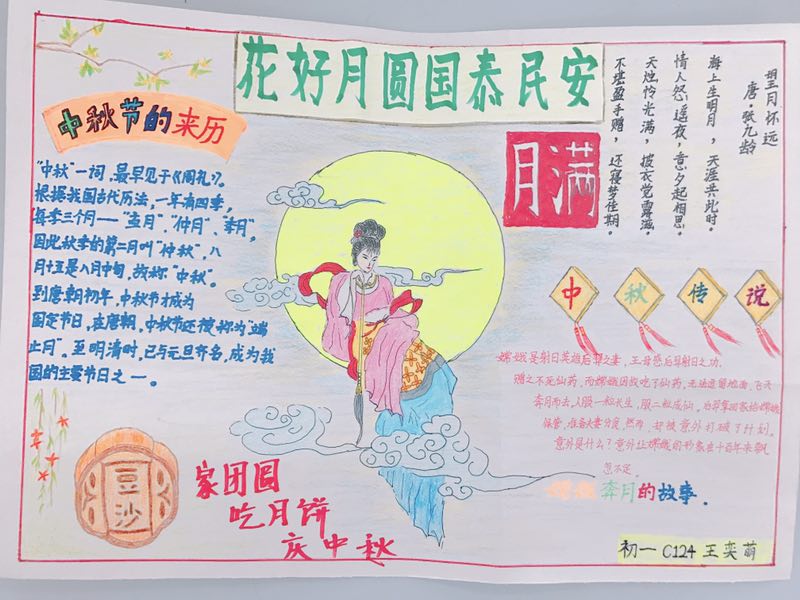 花好月圆国泰民安
中秋节的来历
"中秋"一词,最早见于《周礼》。
根据我国古代历法,一年有四季,
每季三个月——"孟月""仲月""季月",
因此秋季的第二月叫"仲秋",八
月十五是八月中旬,故称"中秋"。
到唐朝初年,中秋节才成为
固定节日,在唐朝,中秋节还被称为"端
正月"。至明清时,已与元旦齐名,成为我
国的主要节日之一。
望月怀远
唐·张九龄
海上生明月,天涯共此时。
情人怨遥夜,竟夕起相思。
灭烛怜光满,披衣觉露滋。
不堪盈手赠,还寝梦佳期。
满月
中秋传说
嫦娥是射日英雄后羿之妻,王母感后羿射日之功,
赠之不死仙药,而嫦娥因故吃了仙药,无法逗留地面,飞天
奔月而去,人服一粒长生,服二粒成仙,
保管,准备夫妻分食,然而,却被意外打破了计划。
意外是什么?意外让嫦娥的形象在千百年来
奔月的故事.
豆沙
家团圆
吃月饼
庆中秋
初一 C124 王奕萌